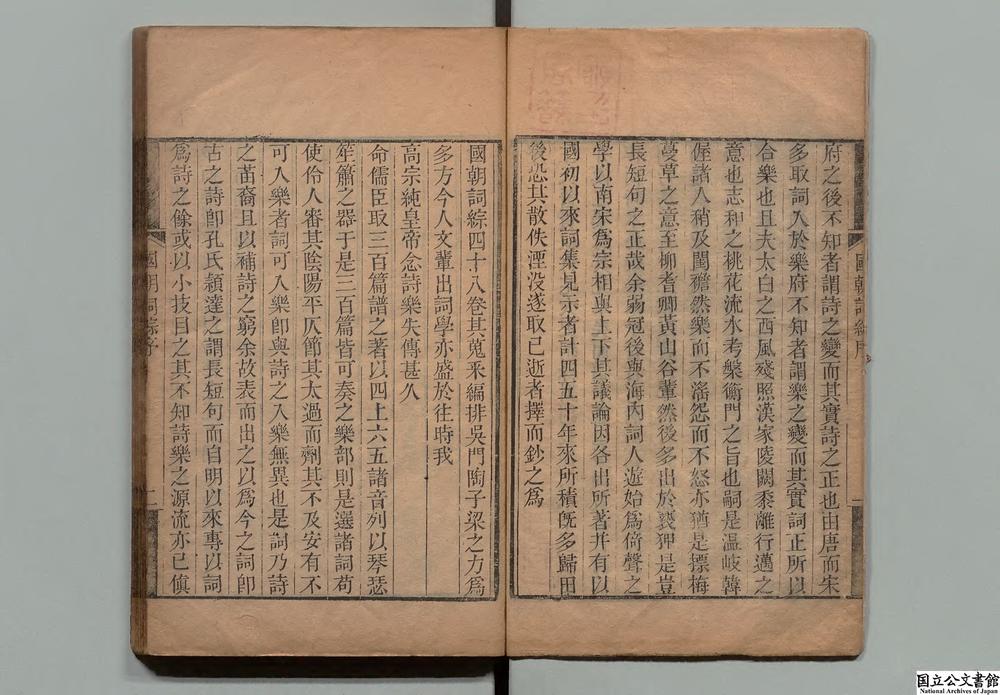 府之後不知者謂詩之變而其實詩之正也由唐而宋
多取詞入於樂府不知者謂樂之變而其實詞正所以
合樂也且夫太白之西風殘照漢家陵闕黍離行邁之
意也志和之桃花流水考槃衡門之旨也嗣是温岐韓
偓諸人稍及閨襜然樂而不滛怨而不怒亦猶是摽梅
蔓草之意至柳耆卿黃山谷輩然後多出於褻狎是豈
長短句之正哉余弱冠後與海内詞人遊始爲倚聲之
學以南宋爲宗相與上下其議論因各出所著并有以
國初以來詞集見示者計四五十年來所積旣多歸田
後恐其散佚湮没遂取已逝者擇而鈔之爲
國朝詞綜四十八卷其蒐釆編排吳門陶子梁之力爲
多方今人文輩出詞學亦盛於往時我
高宗純皇帝念詩樂失傳甚久
命儒臣取三百篇譜之著以四上六五諸音列以琴瑟
笙簫之器于是三百篇皆可奏之樂部則是選諸詞苟
使伶人審其陰陽平仄節其太過而劑其不及安有不
可入樂者詞可入樂卽與詩之入樂無異也是詞乃詩
之苗裔且以補詩之窮余故表而出之以爲今之詞卽
古之詩卽孔氏穎達之謂長短句而自明以來專以詞
爲詩之餘或以小技目之其不知詩樂之源流亦已傎
國朝詞綜序
二
国立公文書館
National Archives of Japan